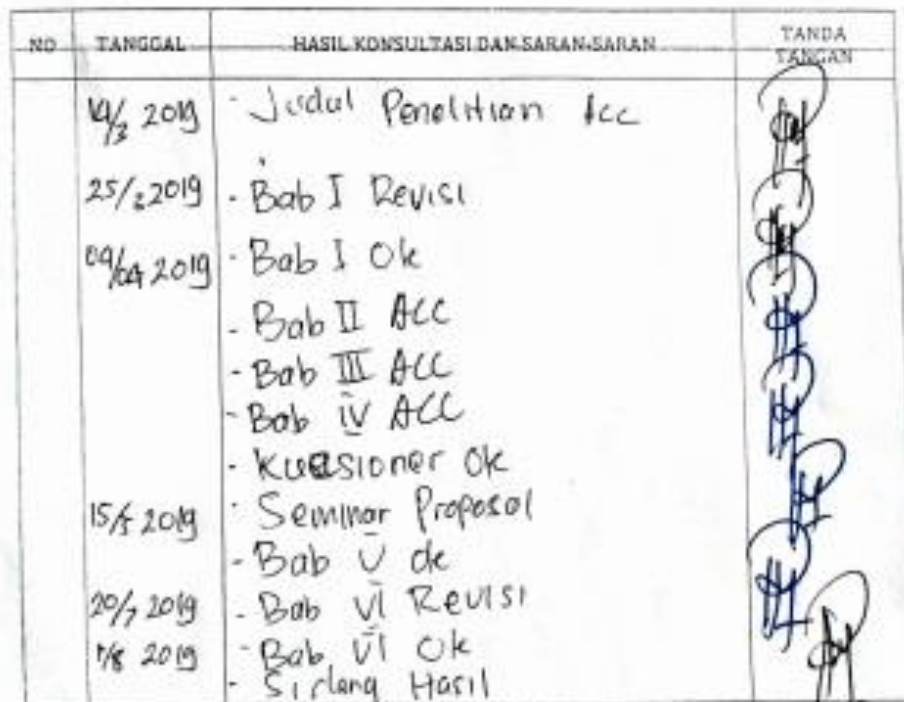 NO TANGGAL HASIL KONSULTASI DAN SARAN-SARAN TANDA TANGAN
19/3 2019 - Judul Penelitian Acc
25/3 2019 - Bab I Revisi
09/04 2019 - Bab I Ok
- Bab II ACC
- Bab III ACC
- Bab IV ACC
- Kuesioner Ok
15/5 2019 - Seminar Proposal
- Bab V Ok
20/7 2019 - Bab VI Revisi
/8 2019 - Bab VI Ok
- Sidang Hasil